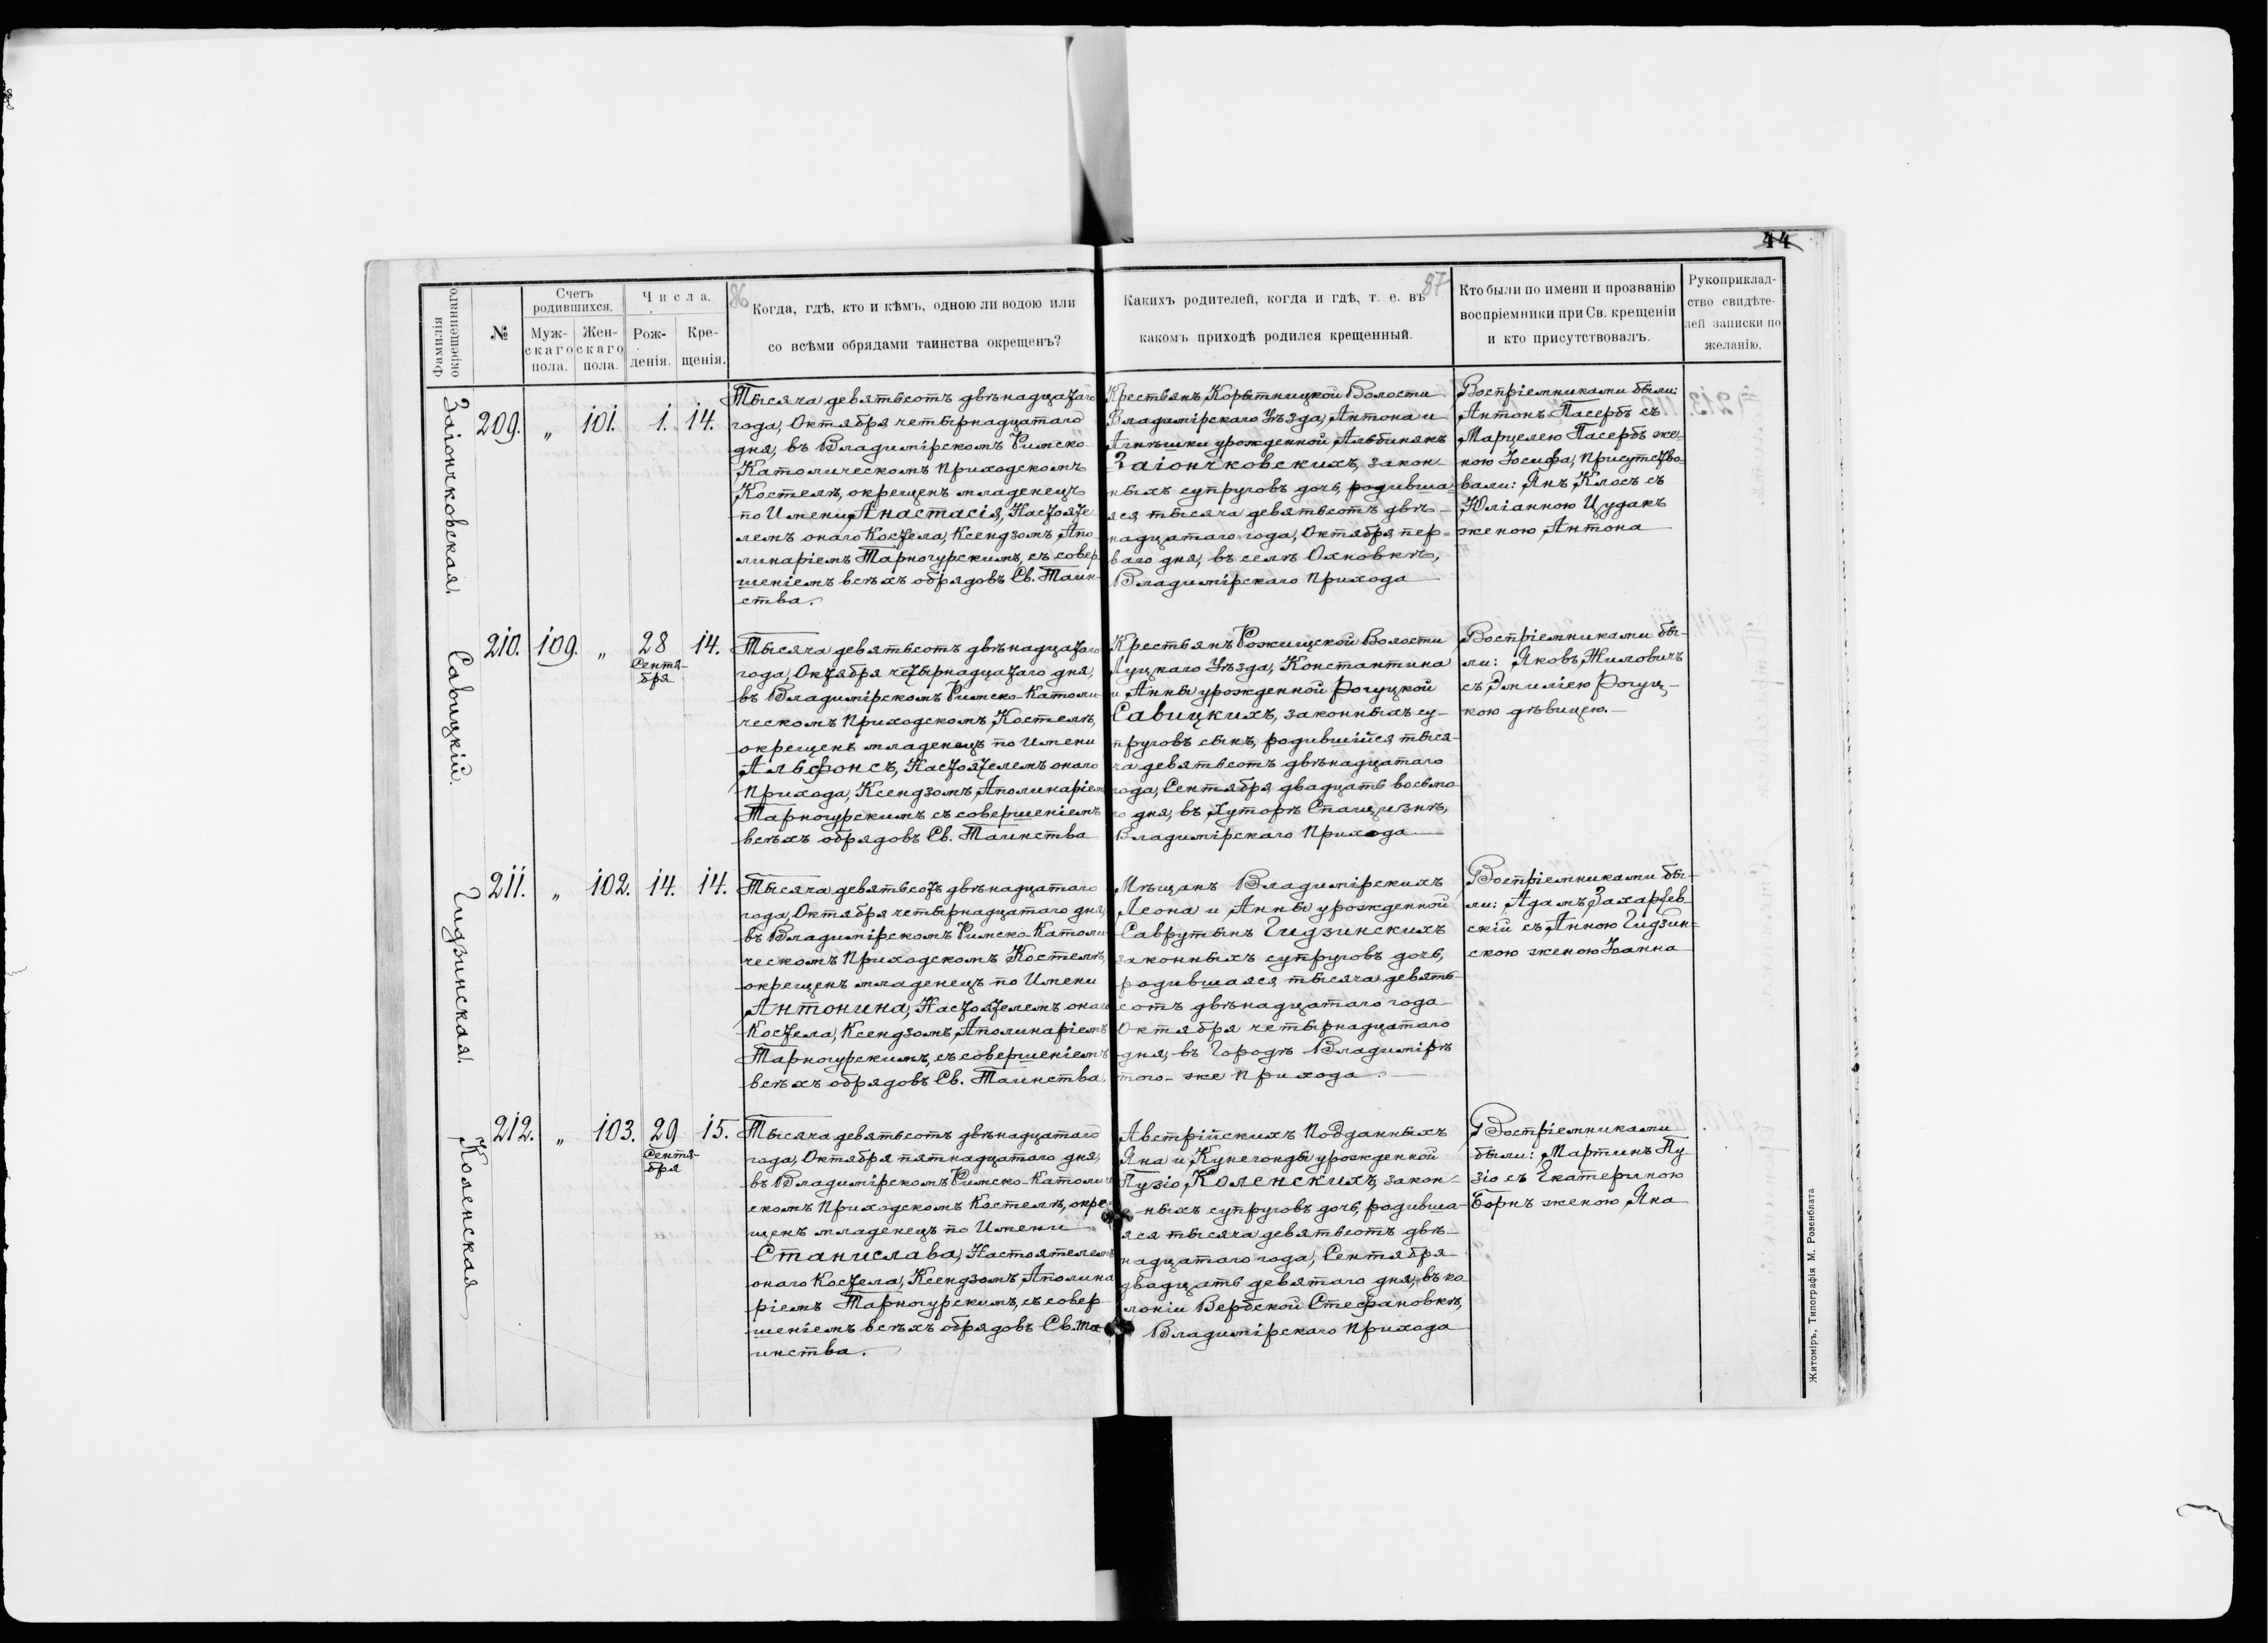 44
86
87
Фамилія
окрещеннаго
№
Счетъ
родившихся.
Муж-
скаго
пола.
Жен-
скаго
пола.
Числа.
Рож-
денія.
Кре-
щенія.
Когда, гдѣ, кто и кѣмъ, одною ли водою или
со всѣми обрядами таинства окрещенъ?
Какихъ родителей, когда и гдѣ, т. е. въ
какомъ приходѣ родился крещенный.
Кто были по имени и прозванію
воспріемники при Св. крещеніи
и кто присутствовалъ.
Рукоприклад-
ство свидѣте-
лей записки по
желанію.
Заіончковская.
209. „ 101. 1. 14.
Тысяча девятьсотъ двѣнадцатаго
года, Октября четырнадцатаго
дня, въ Владимірскомъ Римско
Католическомъ Приходскомъ
Костелѣ, окрещенъ младенецъ
по Имени Анастасія, Настояте-
лемъ онаго Костела, Ксендзомъ, Апо-
линаріемъ Тарногурскимъ, съ совер-
шеніемъ всѣхъ обрядовъ Св. Таин-
ства.
Крестьянъ, Корытницкой Волости
Владимірскаго Уѣзда, Антона и
Агнѣшки урожденной Альбинякъ
Заіончковскихъ, закон-
ныхъ супруговъ дочь, родивша-
яся тысяча девятьсотъ двѣ-
надцатаго года, Октября пер-
ваго дня, въ селѣ Охновкѣ,
Владимірскаго Прихода
Воспріемниками были:
Антонъ Пасербъ съ
Марцелею Пасербъ же-
ною Іосифа, Присутство-
вали: Янъ Клосъ съ
Юліанною Цударъ
женою Антона
Савицкій.
210. 109. „ 28 14.
Сентя-
бря
Тысяча девятьсотъ двѣнадцатаго
года, Октября четырнадцатаго дня,
въ Владимірскомъ Римско-Католи-
ческомъ Приходскомъ Костелѣ,
окрещенъ младенецъ по Имени
Альфонсъ, Настоятелемъ онаго
Прихода, Ксендзомъ, Аполинаріемъ
Тарногурскимъ съ совершеніемъ
всѣхъ обрядовъ Св. Таинства
Крестьянъ Рожищской Волости
Луцкаго Уѣзда, Константина
и Анны урожденной Рогуцкой
Савицкихъ, законныхъ су-
пруговъ сынъ, родившійся тыся-
ча девятьсотъ двѣнадцатаго
года, Сентября двадцать восьмо-
го дня, въ Хуторѣ
Владимірскаго Прихода
Воспріемниками бы-
ли: Яковъ
съ Эмиліею Рогуц-
кою дѣвицею.
Гидзинская.
211. „ 102. 14. 14.
Тысяча девятьсотъ двѣнадцатаго
года, Октября четырнадцатаго дня,
въ Владимірскомъ Римско-Католи-
ческомъ Приходскомъ Костелѣ,
окрещенъ младенецъ по Имени
Антонина, Настоятелемъ онаго
Костела, Ксендзомъ, Аполинаріемъ
Тарногурскимъ, съ совершеніемъ
всѣхъ обрядовъ Св. Таинства.
Мѣщанъ Владимірскихъ
Леона и Анны урожденной
Саврутынъ Гидзинскихъ
законныхъ супруговъ дочь,
родившаяся тысяча девять-
сотъ двѣнадцатаго года
Октября четырнадцатаго
дня, въ Городѣ Владимірѣ
того-же Прихода.
Воспріемниками бы-
ли: Адамъ Захарьев-
скій съ Анною Гидзин-
скою женою Іоанна
Коленская
212. „ 103. 29 15.
Сентя-
бря
Тысяча девятьсотъ двѣнадцатаго
года, Октября пятнадцатаго дня,
въ Владимірскомъ Римско-Католиче-
скомъ Приходскомъ Костелѣ, окре-
щенъ младенецъ по Имени
Станислава, Настоятелемъ
онаго Костела, Ксендзомъ, Аполина-
ріемъ Тарногурскимъ, съ совер-
шеніемъ всѣхъ обрядовъ Св. Та-
инства.
Австрійскихъ Подданныхъ
Яна и Кунегонды урожденной
Пузіо, Коленскихъ, закон-
ныхъ супруговъ дочь, родивша-
яся тысяча девятьсотъ двѣ-
надцатаго года, Сентября
двадцать девятаго дня, въ ко-
лоніи Вербской Стефановкѣ,
Владимірскаго Прихода
Воспріемниками
были: Мартинъ Пу-
зіо съ Екатериною
Борнъ женою Яна
Житоміръ, Типографія М. Розенблата